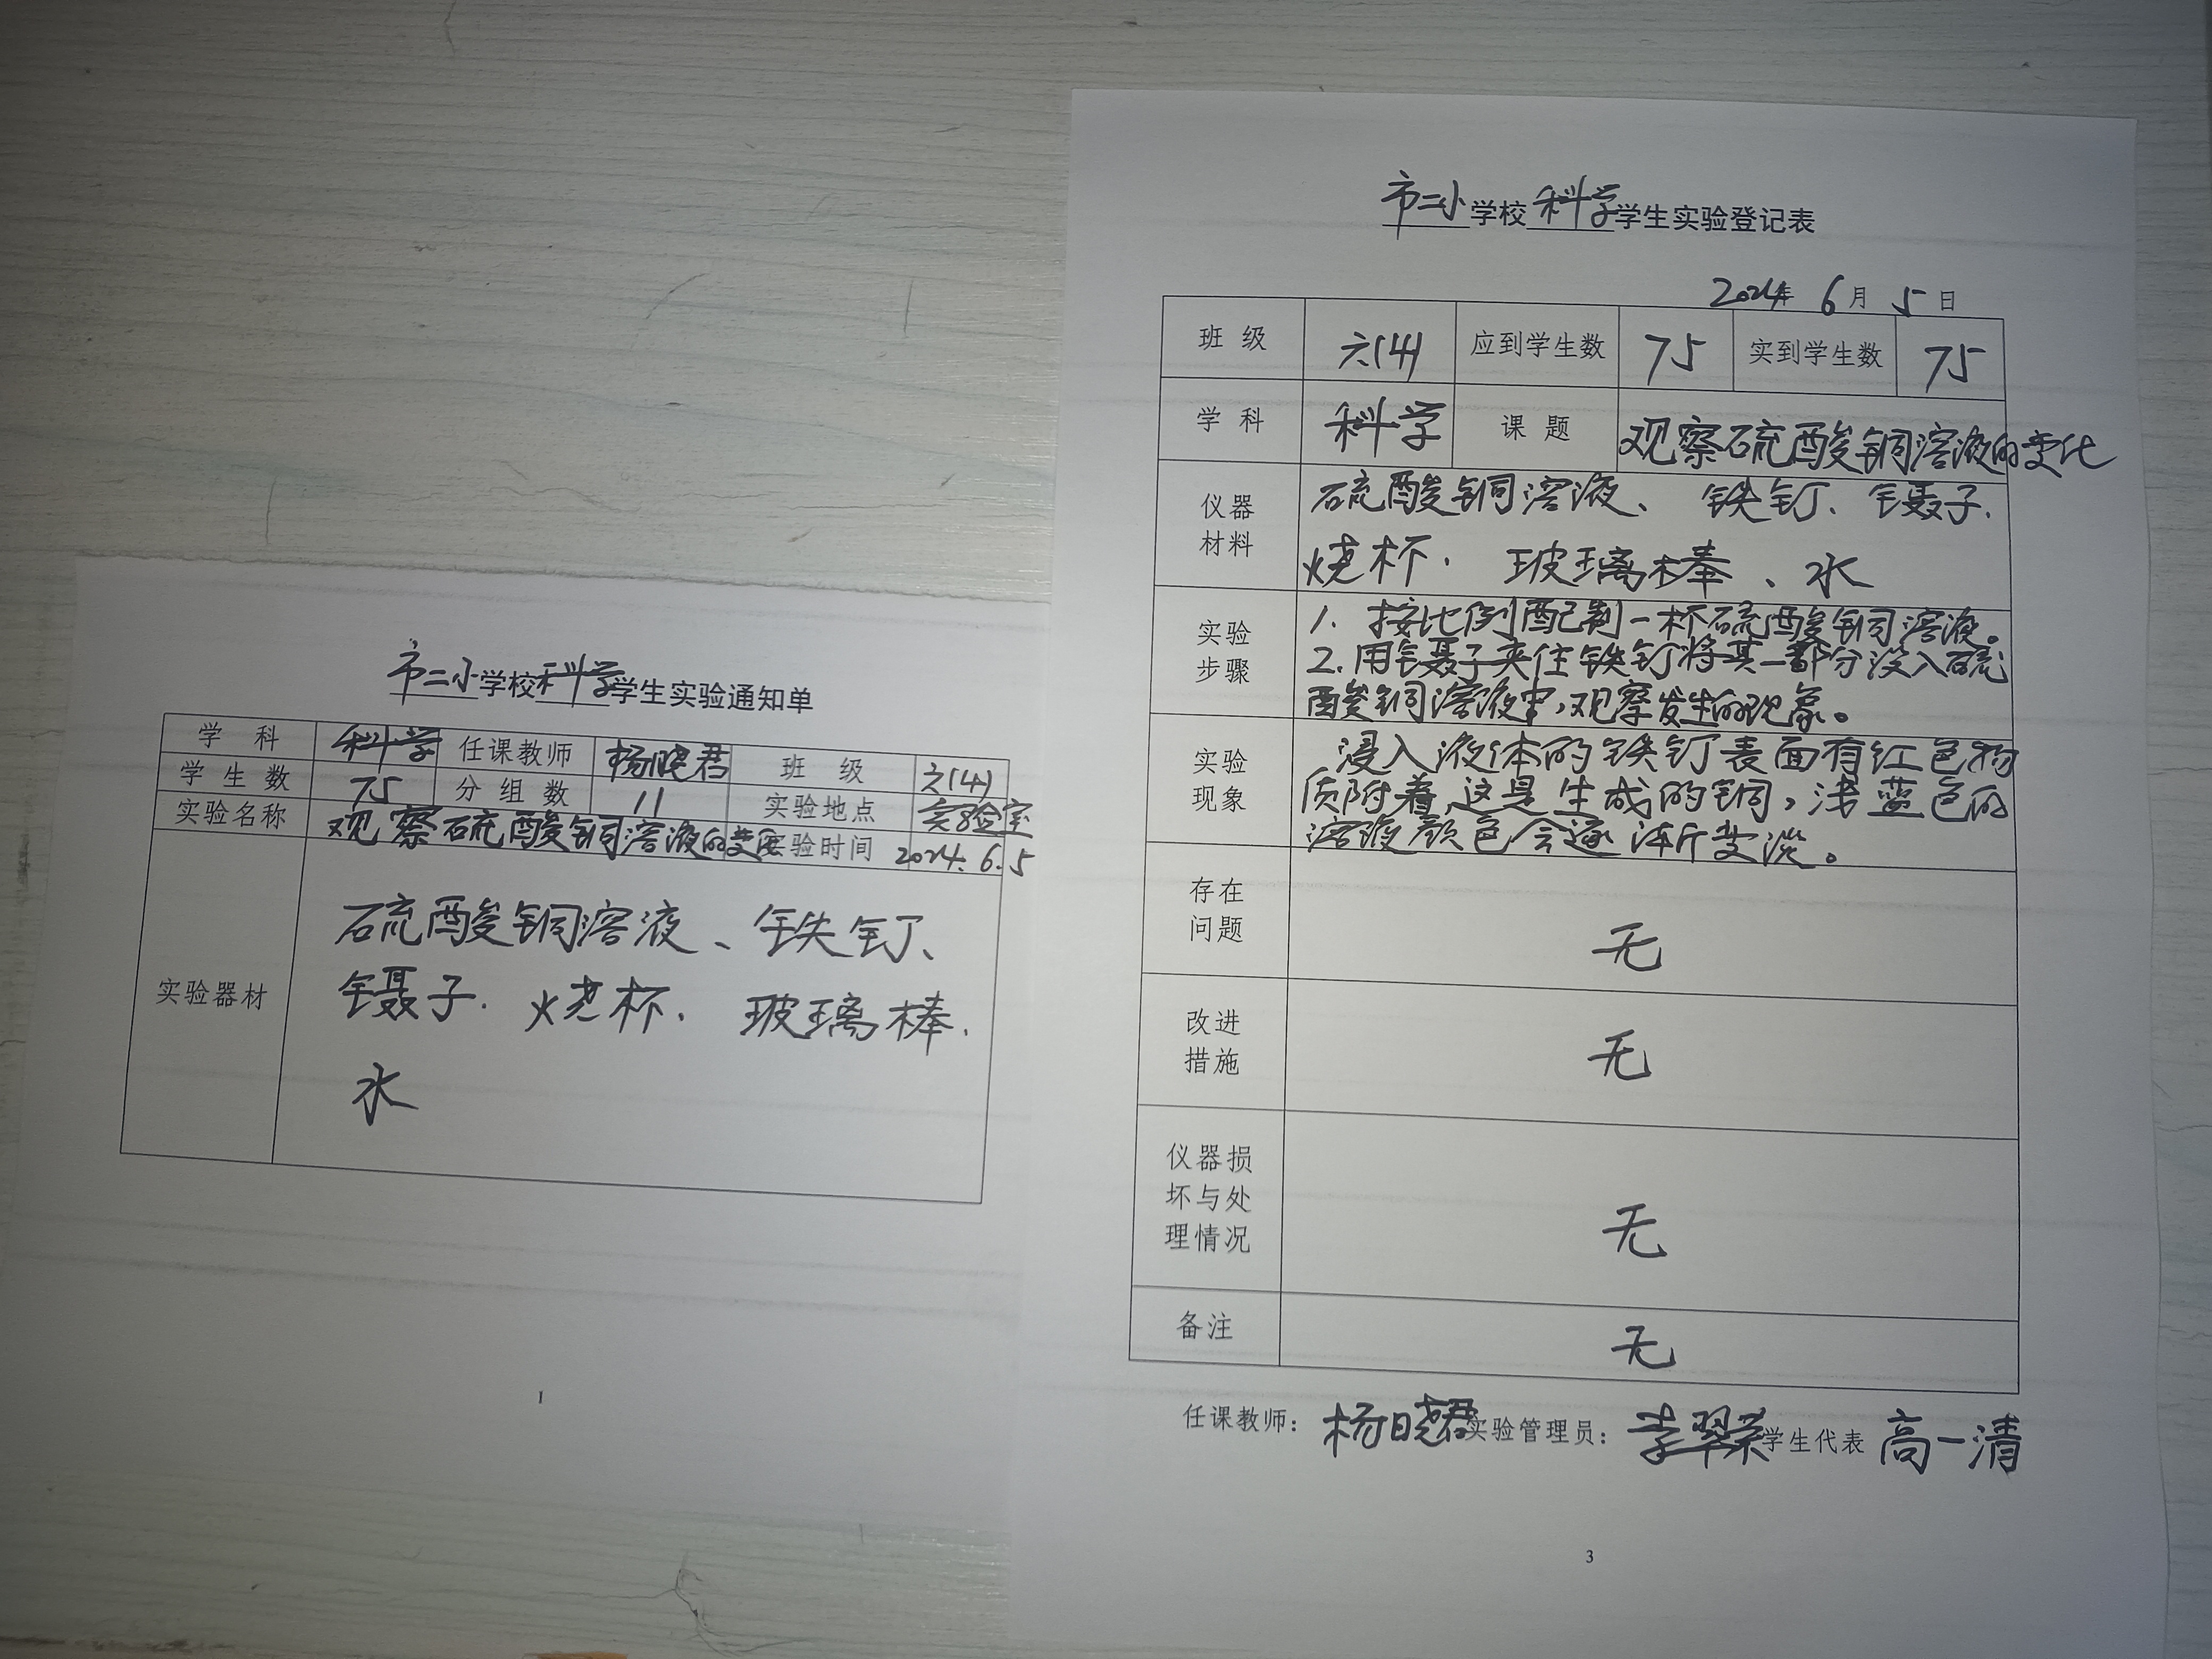 市二小学校科学学生实验通知单
学 科 科学 任课教师 杨晓君 班 级 六(4)
学 生 数 75 分 组 数 11 实验地点 实验室
实验名称 观察硫酸铜溶液的变化 实验时间 2024.6.5
实验器材
硫酸铜溶液、铁钉、
镊子.烧杯.玻璃棒.
水
1
市二小学校科学学生实验登记表
2024年 6月 5日
班 级 六(4) 应到学生数 75 实到学生数 75
学 科 科学 课 题 观察硫酸铜溶液的变化
仪器
材料
硫酸铜溶液、铁钉、镊子.
烧杯.玻璃棒、水
实验
步骤
1. 按比例配制一杯硫酸铜溶液。
2.用镊子夹住铁钉将其一部分浸入硫
酸铜溶液中,观察发生的现象。
实验
现象
浸入液体的铁钉表面有红色物
质附着,这是生成的铜,浅蓝色的
溶液颜色会逐渐变淡。
存在
问题
无
改进
措施
无
仪器损
坏与处
理情况
无
备注 无
任课教师: 杨晓君 实验管理员: 李翠荣 学生代表 高一清
3